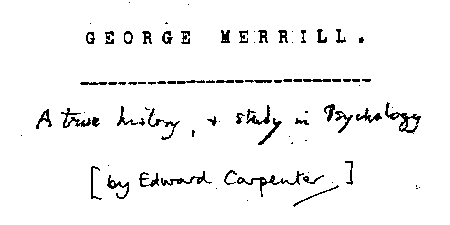 GEORGE MERRILL.
A true history, & study in Psychology
[by Edward Carpenter]